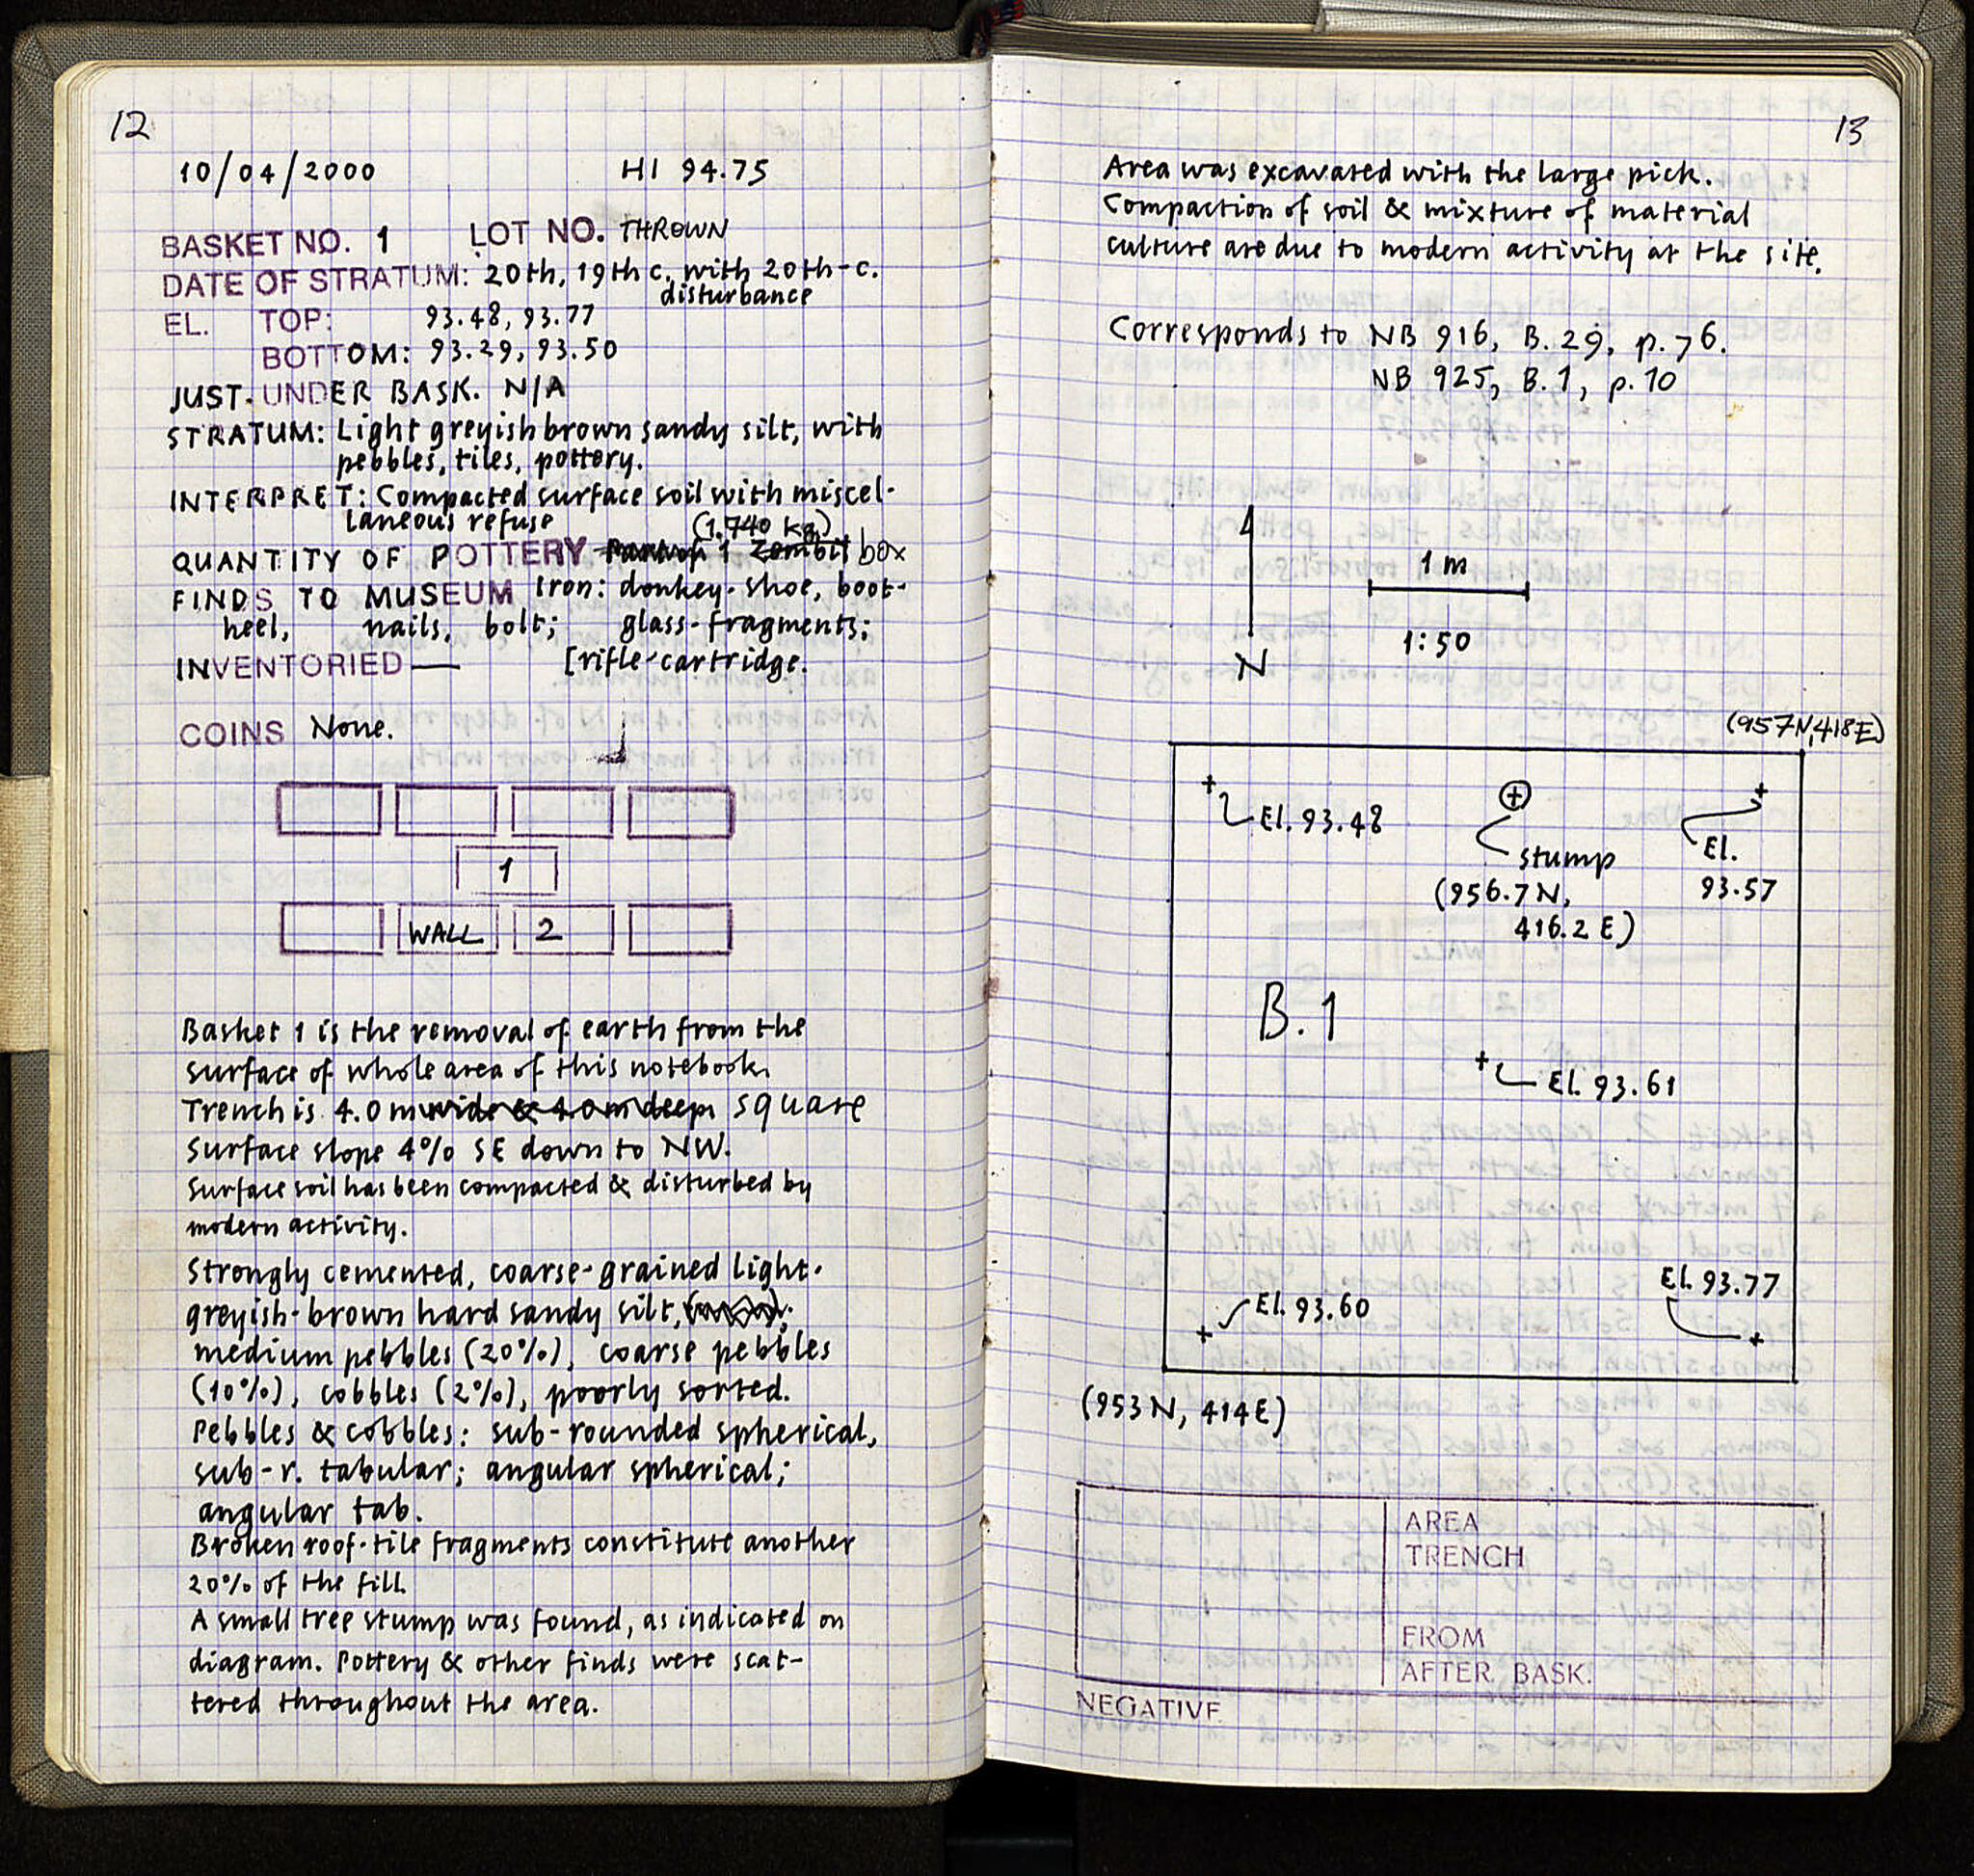 12
10/04/2000 HI 94.75
BASKET NO. 1 LOT NO. THROWN
DATE OF STRATUM: 20th, 19th c, with 20th-c.
disturbance
EL. TOP: 93.48, 93.77
BOTTOM: 93.29, 93.50
JUST. UNDER BASK. N/A
STRATUM: Light greyish brown sandy silt, with
pebbles, tiles, pottery.
INTERPRET: Compacted surface soil with miscel-
laneous refuse (1.740 kg)
QUANTITY OF POTTERY 1 Zembil box
FINDS TO MUSEUM Iron: donkey-shoe, boot-
heel, nails, bolt; glass-fragments;
INVENTORIED — [rifle-cartridge.
COINS None.
1
WALL 2
Basket 1 is the removal of earth from the
surface of whole area of this notebook.
Trench is 4.0 m wide & 4.0 m deep square
Surface slope 4% SE down to NW.
Surface soil has been compacted & disturbed by
modern activity.
Strongly cemented, coarse-grained light-
greyish-brown hard sandy silt,
medium pebbles (20%), coarse pebbles
(10%), cobbles (2%), poorly sorted.
Pebbles & cobbles: sub-rounded spherical,
sub-r. tabular; angular spherical;
angular tab.
Broken roof-tile fragments constitute another
20% of the fill.
A small tree stump was found, as indicated on
diagram. Pottery & other finds were scat-
tered throughout the area.
13
Area was excavated with the large pick.
Compaction of soil & mixture of material
culture are due to modern activity at the site.
Corresponds to NB 916, B. 29, p. 76.
NB 925, B. 1, p. 10
1 m
1:50
N
(957N, 418E)
El. 93.48
stump
(956.7 N,
416.2 E)
El.
93.57
B. 1
El. 93.61
El. 93.77
El. 93.60
(953 N, 414 E)
AREA
TRENCH
FROM
AFTER BASK.
NEGATIVE